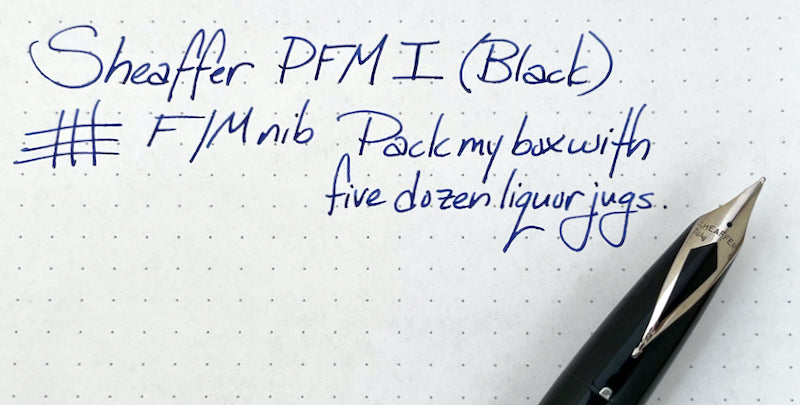 Sheaffer PFM I (Black)
F/M nib Pack my box with
five dozen liquor jugs.
SHEAFFER